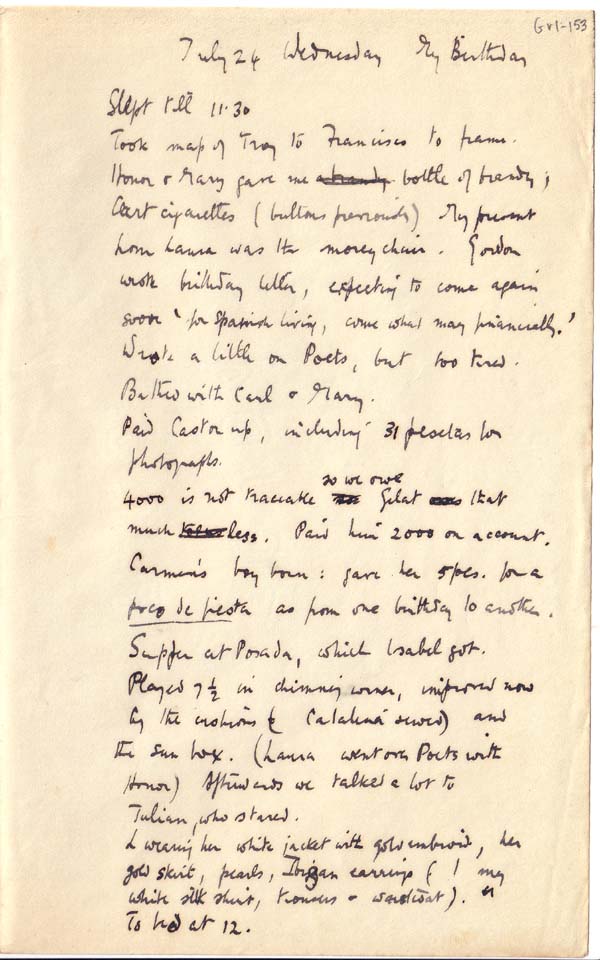 GV1-153
July 24 Wednesday My Birthday
Slept till 11.30
Took map of Troy to Francisco to frame.
Honor & Mary gave me a brandy bottle of brandy;
Cart cigarettes (buttons previously) My present
from Laura was the money chair. Gordon
wrote birthday letter, expecting to come again
soon 'for Spanish living, come what may financially.'
Wrote a little on Poets, but too tired.
Bathed with Carl & Mary.
Paid Castor up, including 31 pesetas for
photographs.
so we owe
4000 is not traceable Gelat that
much less. Paid him 2000 on account.
Carmen's boy born: gave her 5pes. for a
poco de fiesta as from one birthday to another.
Supper at Posada, which Isabel got.
Played 7½ in chimney corner, improved now
by the cushions ( Catalina sewed) and
the sun box. (Laura went over Poets with
Honor) Afterwards we talked a lot to
Julian, who stared.
L wearing her white jacket with gold embroid, her
gold skirt, pearls, Ibizan earrings ( I my
white silk shirt, trousers & waistcoat).
To bed at 12.